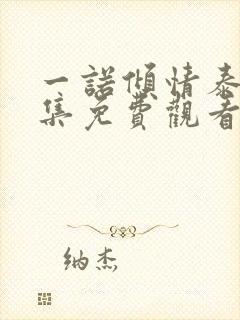 一諾傾情泰
集免費觀看
纳杰